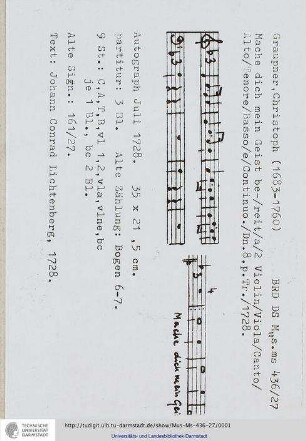 Graupner, Christoph (1683-1760) BRD DS Mus.ms 436/27
Mache dich mein Geist be-/reit/a/2 Violin/Viola/Canto/
Alto/Tenore/Basso/e/Continuo./Dn.8.p.Tr./1728.
Mache dich mein Gei
Autograph Juli 1728. 35 x 21,5 cm.
partitur: 3 Bl. Alte Zählung: Bogen 6-7.
9 St.: C,A,T,B,vl 1,2,vla,vlne,bc
je 1 Bl., bc 2 Bl.
Alte Sign.: 161/27.
Text: Johann Conrad Lichtenberg, 1728.
http://tudigit.ulb.tu-darmstadt.de/show/Mus-Ms-436-27/0001
Universitäts- und Landesbibliothek Darmstadt
TECHNISCHE
UNIVERSITÄT
DARMSTADT